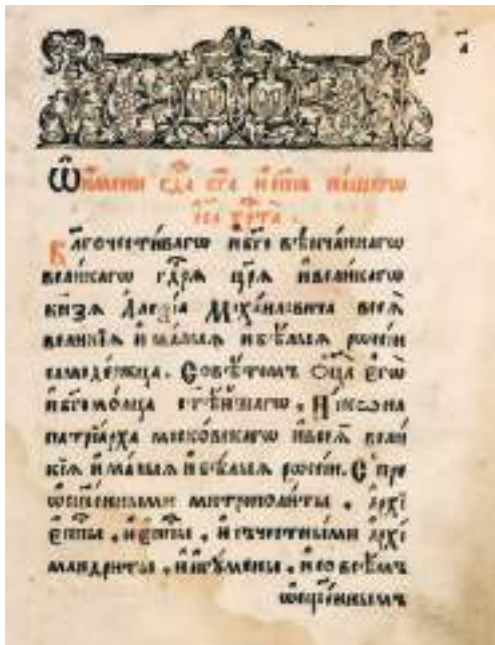 Ѿ и҆мени гдⷭ҇а бг҃а и҆ сп҃са на́шегѡ
і҆с҃а хрⷭ҇та̀.
Бл҃гочести́вагѡ и҆ бг҃овѣнча́ннагѡ
вели́кагѡ гдⷭ҇рѧ цр҃ѧ и҆ вели́кагѡ
кн҃зѧ Алеѯі́а Миха́иловича всеѧ̀
вели́кїѧ и҆ ма́лыѧ и҆ бѣ́лыѧ рѡсі́и
самоде́ржца. Совѣ́томъ ѻ҆ц҃а̀ є҆гѡ̀
и҆ бг҃омо́лца ст҃ѣ́йшагѡ, Ни́кѡна
патрїа́рха моско́вскагѡ и҆ всеѧ̀ вели́
кїѧ и҆ ма́лыѧ и҆ бѣ́лыѧ рѡсі́и. С пре
ѡ҆сщ҃е́нными митрополи́ты, а҆рхїе
єпⷭ҇пы, и҆ є҆пⷭ҇пы, и҆ съ честны́ми а҆рхї
мандри́ты, и҆ и҆гꙋ́мены, и҆ со всѣ́мъ
ѡ҆сщ҃е́ннымъ